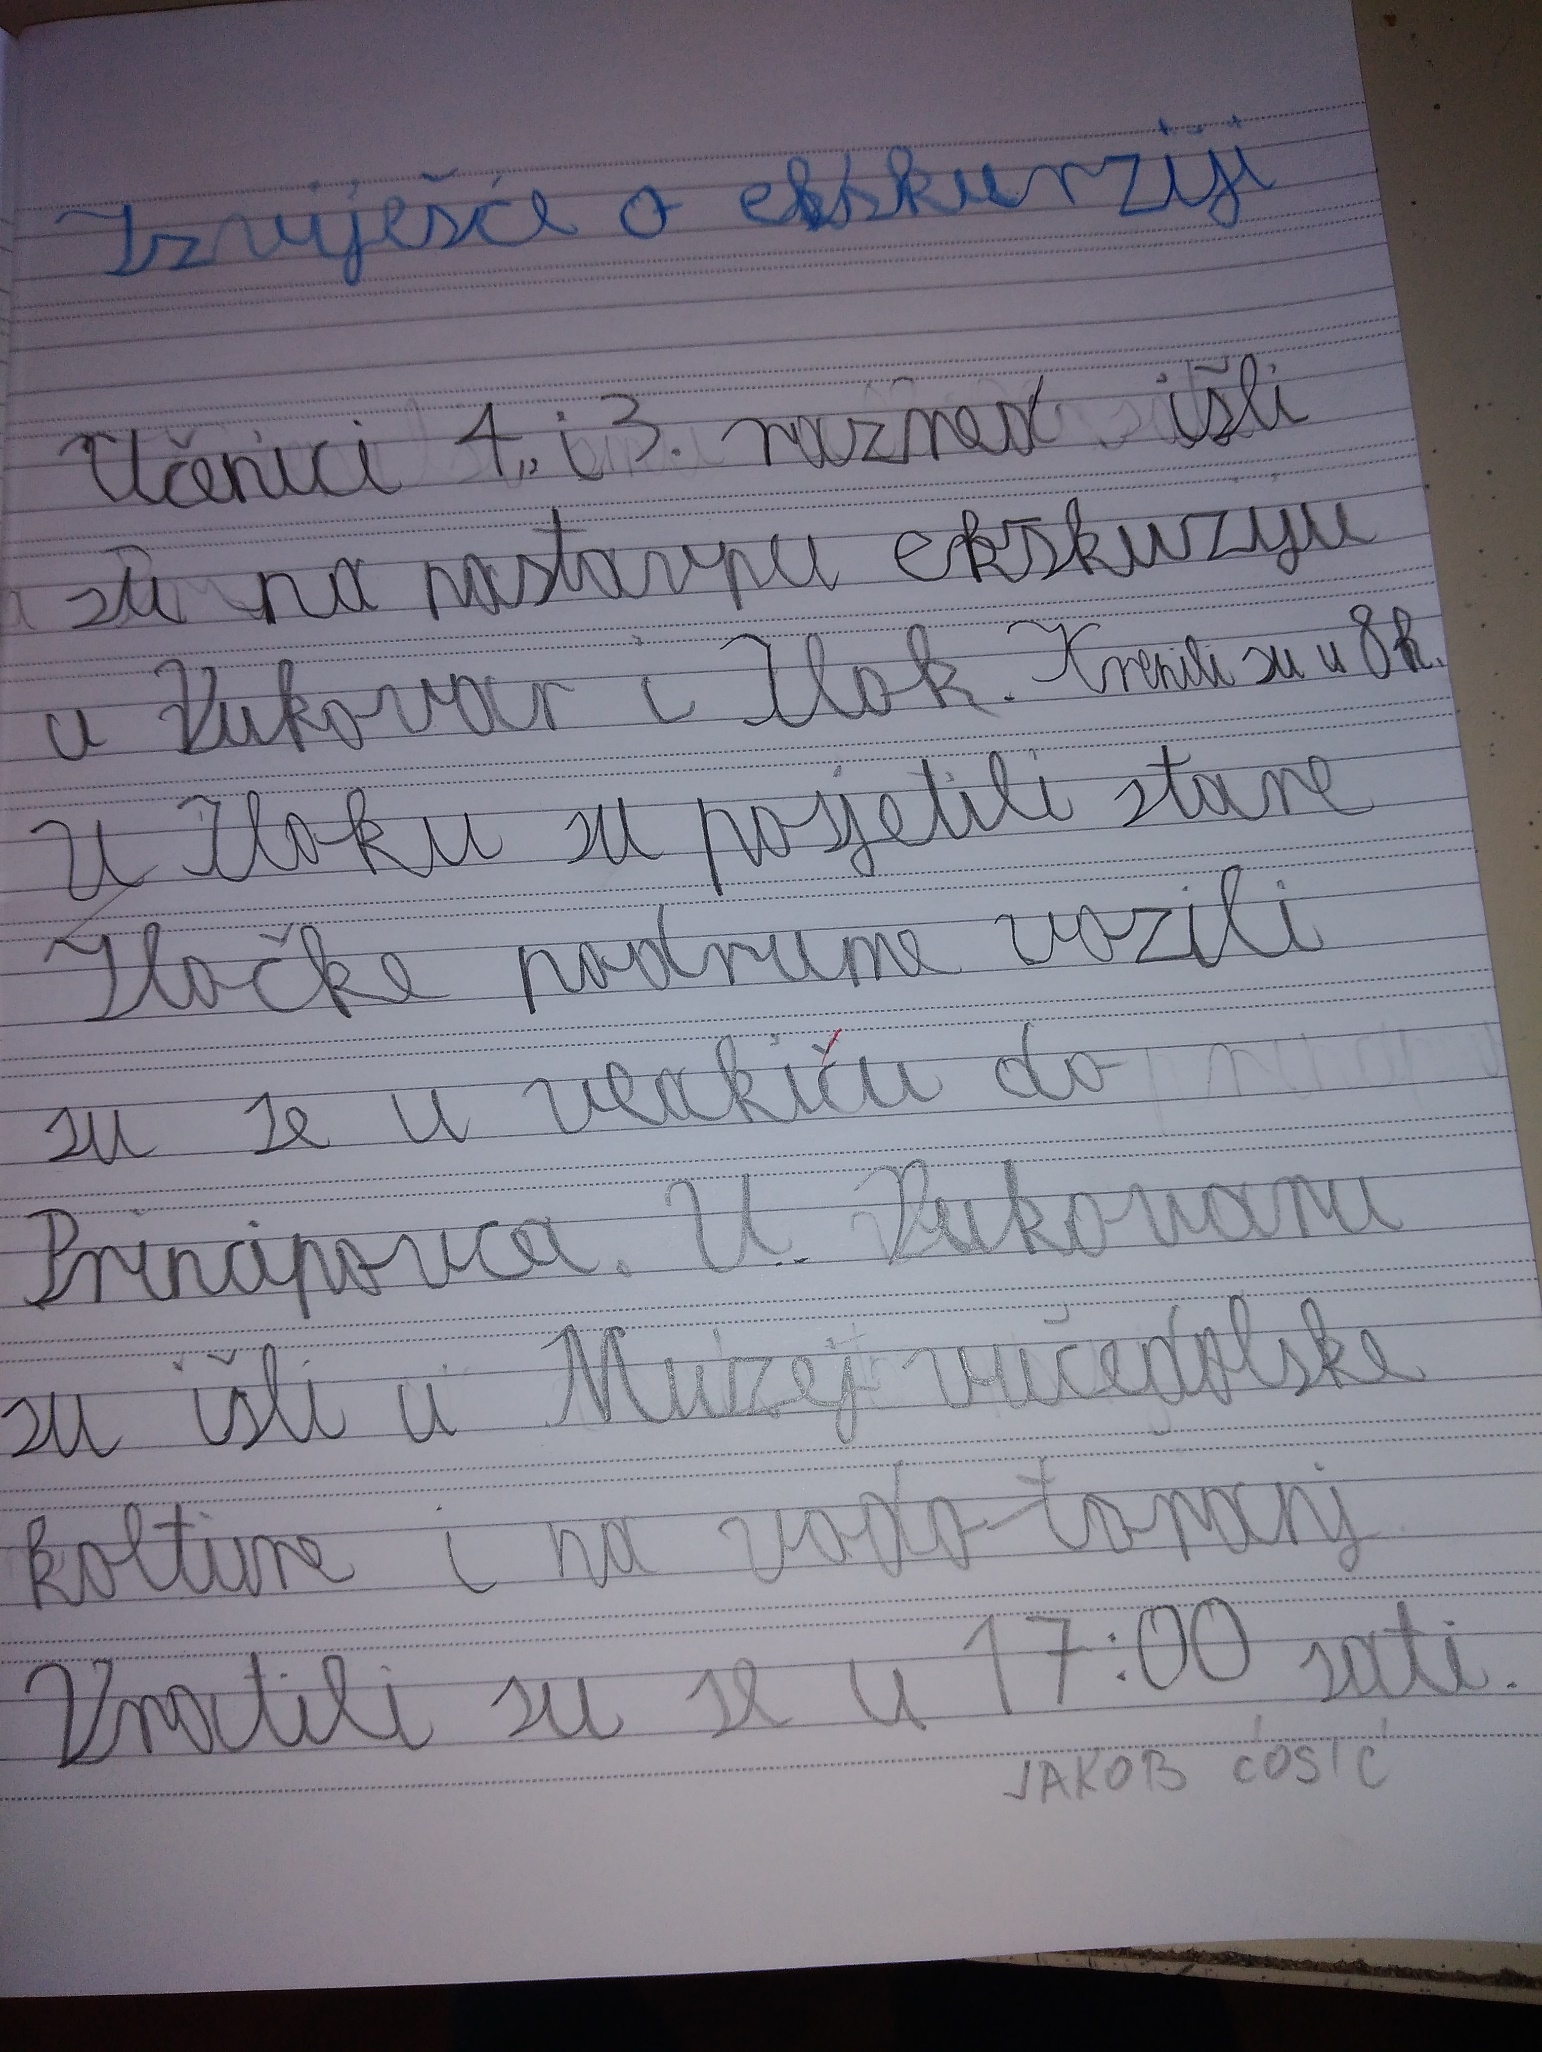 Izviješće o ekskurziji
Učenici 4. i 3. razred išli
su na nastavnu ekskurziju
u Vukovar i Ilok. Krenili su u 8h.
U Iloku su posjetili stare
Iločke podrume vozili
su se u vlakiću do
Principovca. U Vukovaru
su išli u Muzej vučedolske
kolture i na vodo-toranj
Vratili su se u 17:00 sati.
JAKOB ĆOSIĆ